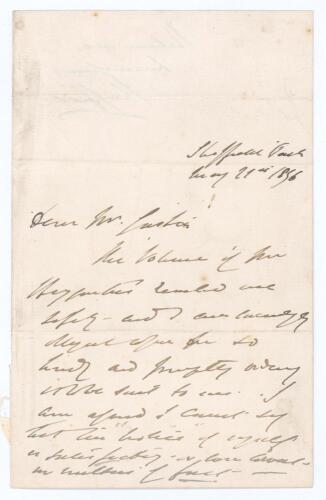 Sheffield Park
May 21st 1896
Dear Mr. Justin
The Volume of the
reached me
safely - and I am exceedingly
obliged to you for so
kindly and promptly ordering
it to be sent to me. I
am afraid I cannot say
that the "notice" of myself
is satisfactory -
in matters of fact -